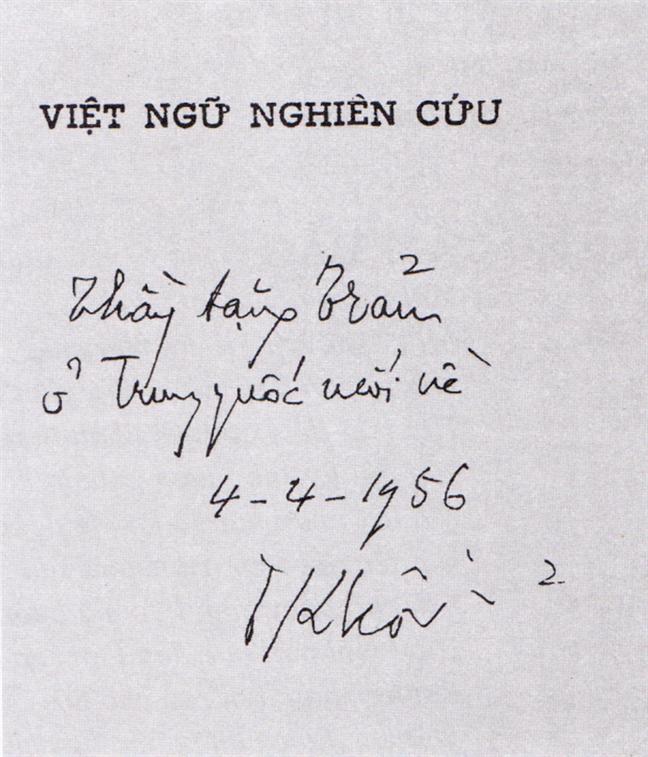 VIỆT NGỮ NGHIÊN CỨU
Thầy tặng Trản
ở Trung quốc mới về
4-4-1956
PKhôi